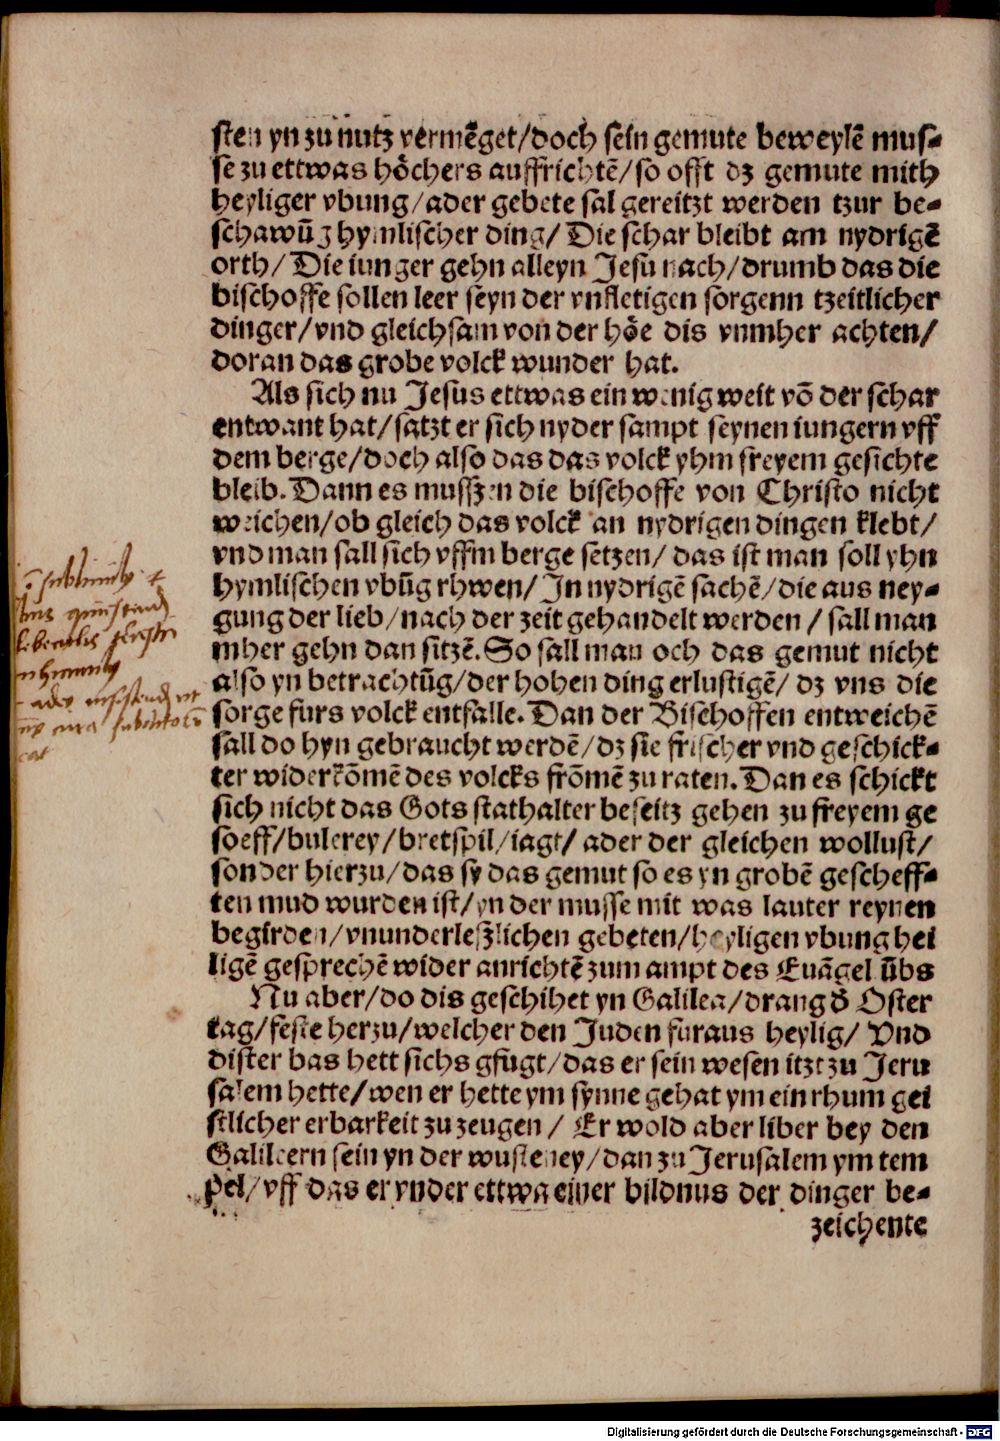 sten yn zu nutz vermẽget/doch sein gemute beweylẽ mus-
se zu ettwas hőchers auffrichtẽ/so offt dz gemute mith
heyliger vbung/ader gebete sal gereitzt werden tzur be-
schawũg hymlischer ding/ Die schar bleibt am nydrigẽ
orth/ Die iunger gehn alleyn Jesu nach/drumb das die
bischoffe sollen leer seyn der vnfletigen sorgenn tzeitlicher
dinger/vnd gleichsam von der hőe dis vnmher achten/
doran das grobe volck wunder hat.
Als sich nu Jesus ettwas ein wenig weit võ der schar
entwant hat/satzt er sich nyder sampt seynen iungern vff
dem berge/doch also das das volck yhm freyem gesichte
bleib. Dann es mussZen die bischoffe von Christo nicht
weichen/ob gleich das volck an nydrigen dingen klebt/
vnd man sall sich vffm berge setzen/ das ist man soll yhn
hymlischen vbũg rhwen/ In nydrigẽ sachẽ/die aus ney-
gung der lieb/nach der zeit gehandelt werden/ sall man
mher gehn dan sitzẽ. So sall man och das gemut nicht
also yn betrachtũg/der hohen ding erlustigẽ/ dz vns die
sorge furs volck entfalle. Dan der Bischoffen entweichẽ
sall do hyn gebraucht werdẽ/dz sie frischer vnd geschick-
ter widerkõmẽ des volcks frõmẽ zu raten. Dan es schickt
sich nicht das Gots stathalter beseitz gehen zu freyem ge
soeff/bulerey/bretspil/iagt/ ader der gleichen wollust/
sonder hierzu/das sy das gemut so es yn grobẽ gescheff-
ten mud wurden ist/yn der musse mit was lauter reynen
begirden/vnunderleßlichen gebeten/heyligen vbung hei
ligẽ gesprechẽ wider anrichtẽ zum ampt des Euãgel ũbs
Nu aber/do dis geschihet yn Galilea/drang d̕ Oster
tag/feste herzu/welcher den Juden furaus heylig/ Vnd
dister bas hett sichs gfugt/das er sein wesen itzt zu Jeru
salem hette/wen er hette ym synne gehat ym ein rhum gei
stlicher erbarkeit zu zeugen/ Er wold aber liber bey den
Galileern sein yn der wusteney/dan zu Jerusalem ym tem
pel/vff das er ynder ettwa einer bildnus der dinger be-
zeichente
Digitalisierung gefördert durch die Deutsche Forschungsgemeinschaft - DFG